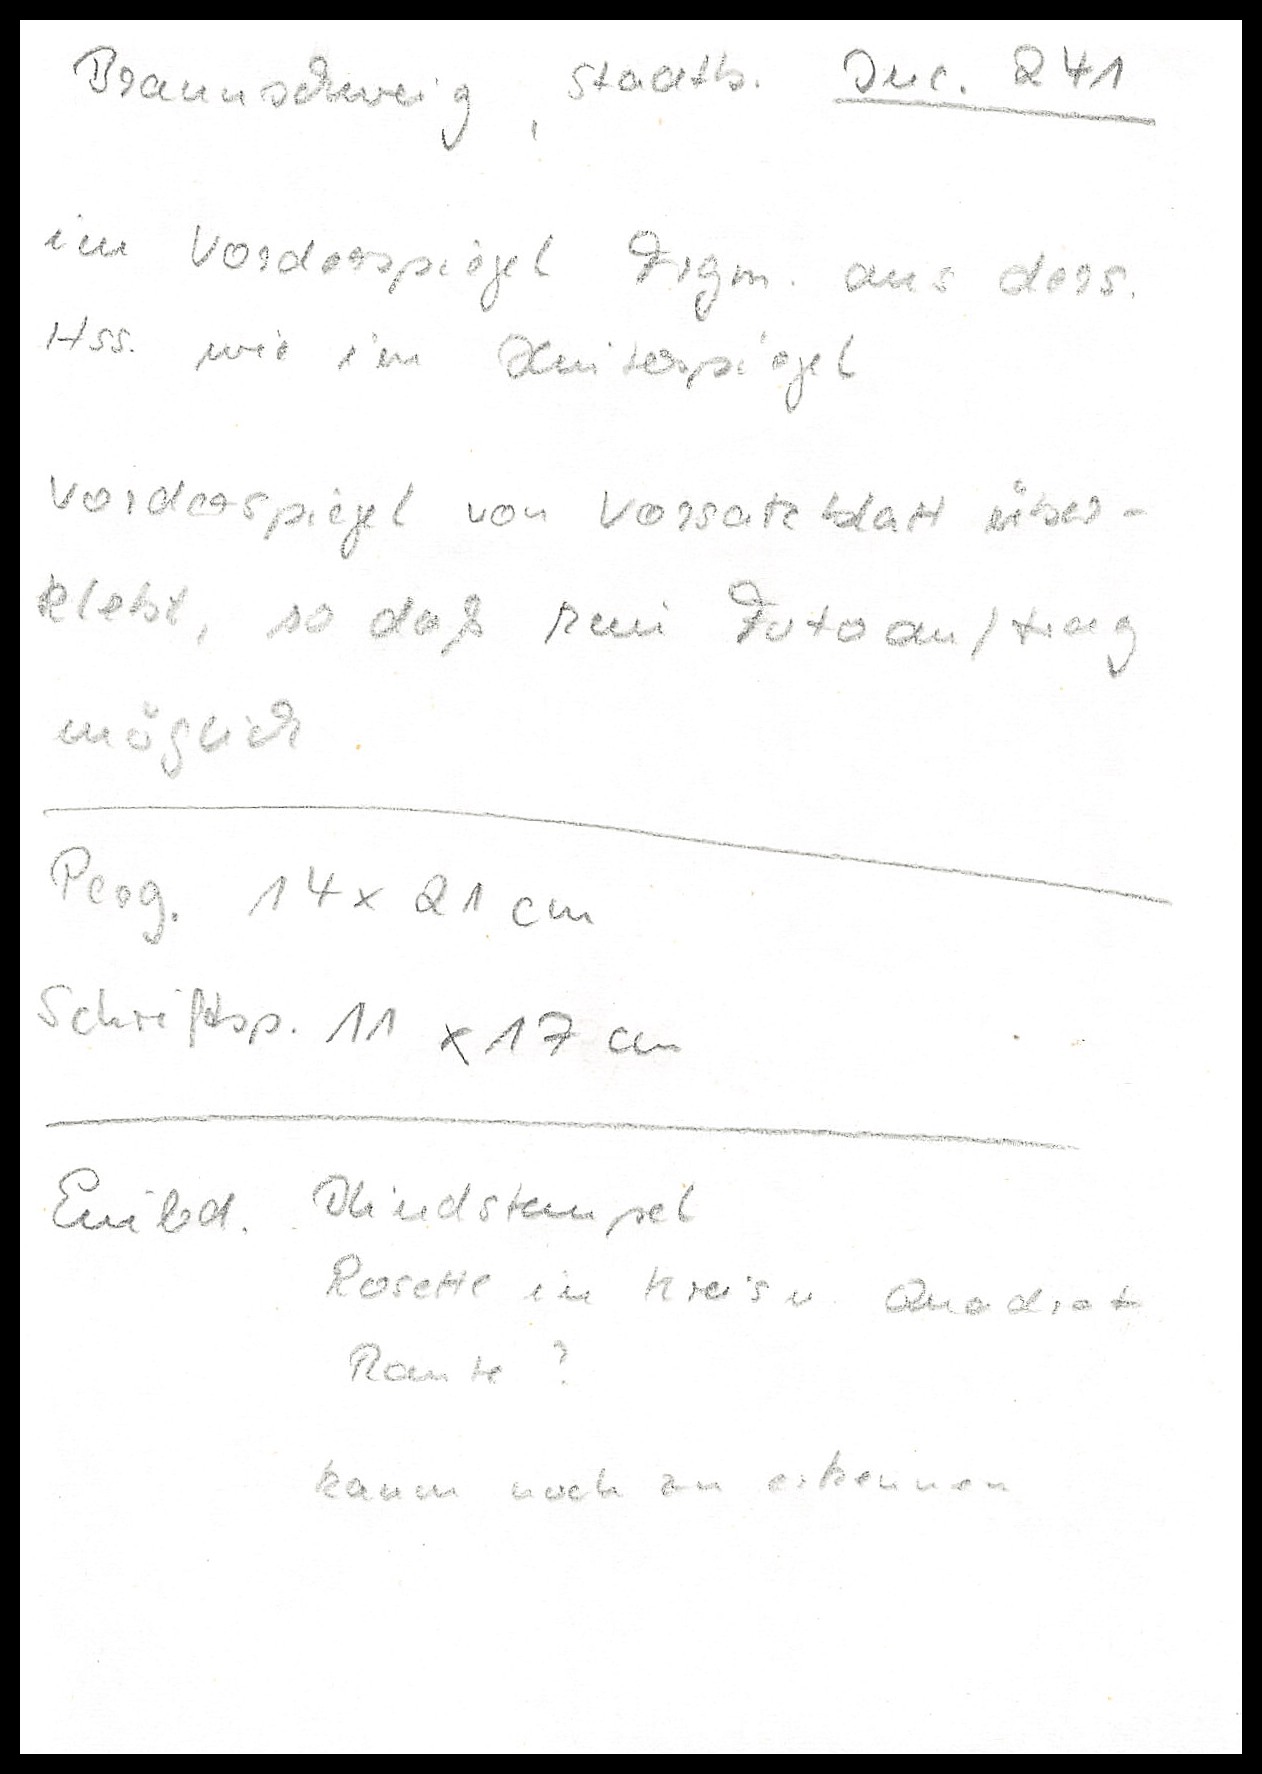 Braunschweig, Stadtb. Inc. 241
im Vorderspiegel Frgm. aus ders.
Hss. wie im Hinterspiegel
Vorderspiegel von Vorsatzblatt über-
klebt, so daß kein Fotoauftrag
möglich
Perg. 14 x 21 cm
Schriftsp. 11 x 17 cm
Einbd. Blindstempel
Rosette im Kreis u. Quadrat
Raute ?
kaum noch zu erkennen